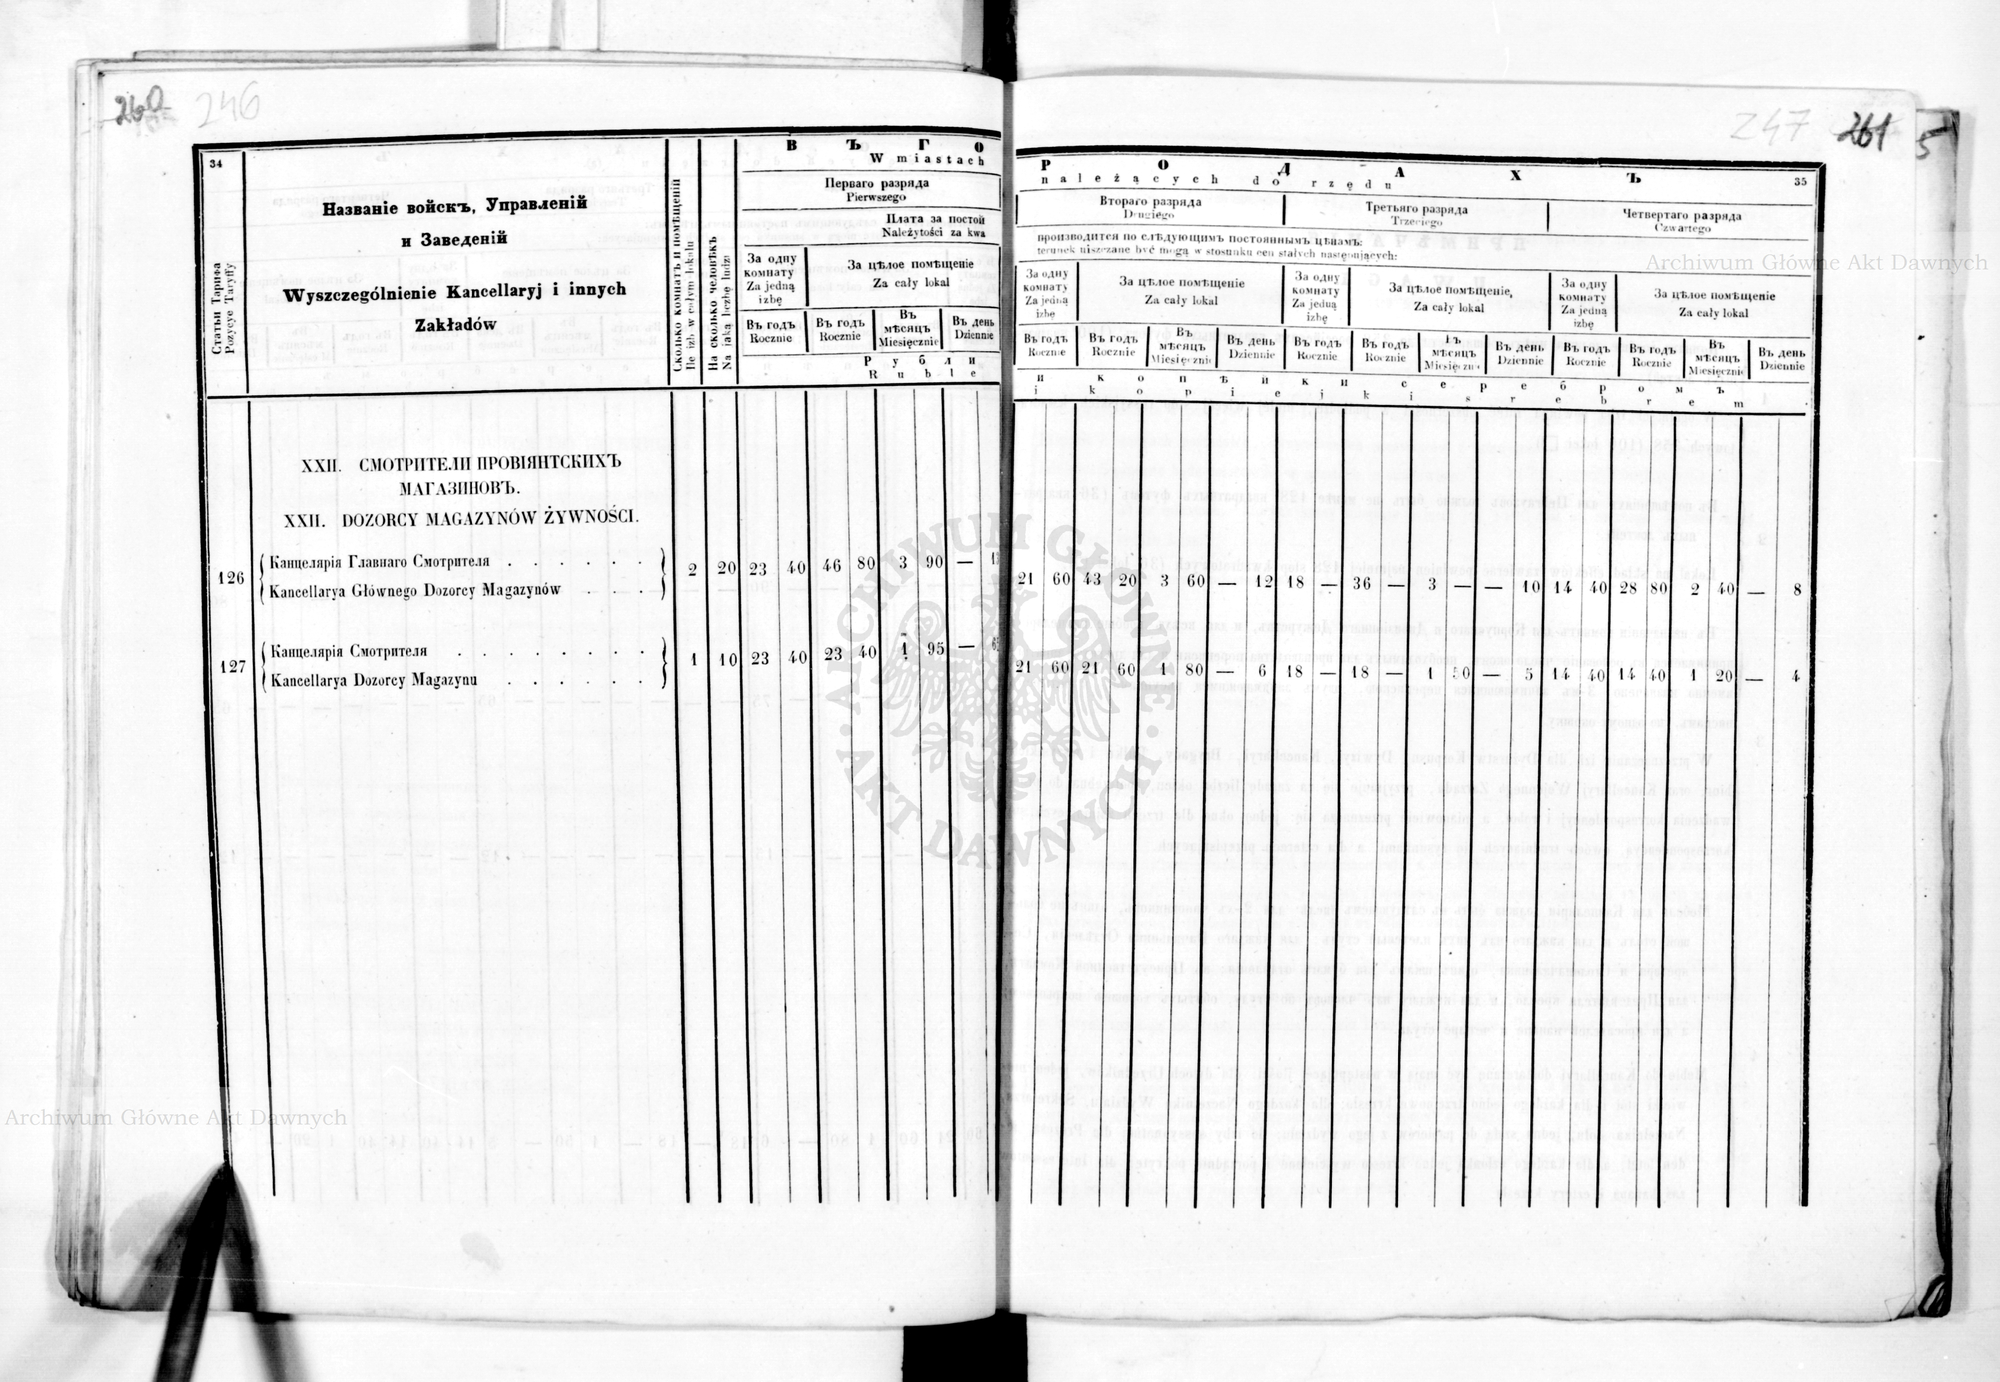 260
246
34
Статьи Тарифа
Pozycye Taryffy
Названіе войскъ, Управленій
и Заведеній
Wyszczególnienie Kancellaryj i innych
Zakładów
Сколько комнатъ въ помѣщеніи
Ile izb w całym lokalu
На сколько человѣкъ
Na jaką liczbę ludzi
ВЪ ГО
W miastach
Перваго разряда
Pierwszego
Плата за постой
Należytości za kwa
За одну комнату
Za jedną izbę
За цѣлое помѣщеніе
Za cały lokal
Въ годъ Rocznie
Въ годъ Rocznie
Въ мѣсяцъ Miesięcznie
Въ день Dziennie
Рубли
Ruble
XXII. СМОТРИТЕЛИ ПРОВІЯНТСКИХЪ
МАГАЗИНОВЪ.
XXII. DOZORCY MAGAZYNÓW ŻYWNOŚCI.
126
Канцелярія Главнаго Смотрителя . . . . . .
Kancellarya Głównego Dozorcy Magazynów . . .
2 20 23 40 46 80 3 90 — 13
127
Канцелярія Смотрителя . . . . . . . .
Kancellarya Dozorcy Magazynu . . . . . .
1 10 23 40 23 40 1 95 —
247
261
5
РОДАХЪ
należących do rzędu
35
Втораго разряда
Drugiego
Третьяго разряда
Trzeciego
Четвертаго разряда
Czwartego
производится по слѣдующимъ постояннымъ цѣнамъ:
terunek uiszczane być mogą w stosunku cen stałych następujących:
За одну комнату
Za jedną izbę
За цѣлое помѣщеніе
Za cały lokal
За одну комнату
Za jedną izbę
За цѣлое помѣщеніе,
Za cały lokal
За одну комнату
Za jedną izbę
За цѣлое помѣщеніе
Za cały lokal
Въ годъ Rocznie
Въ годъ Rocznie
Въ мѣсяцъ Miesięcznie
Въ день Dziennie
Въ годъ Rocznie
Въ годъ Rocznie
Въ мѣсяцъ Miesięcznie
Въ день Dziennie
Въ годъ Rocznie
Въ годъ Rocznie
Въ мѣсяцъ Miesięcznie
Въ день Dziennie
и копѣйки серебромъ
i kopiejki srebrem
21 60 43 20 3 60 — 12 18 — 36 — 3 — — 10 14 40 28 80 2 40 — 8
21 60 21 60 1 80 — 6 18 — 18 — 1 50 — 5 14 40 14 40 1 20 — 4
Archiwum Główne Akt Dawnych
ARCHIWUM GŁÓWNE · AKT DAWNYCH ·
Archiwum Główne Akt Dawnych